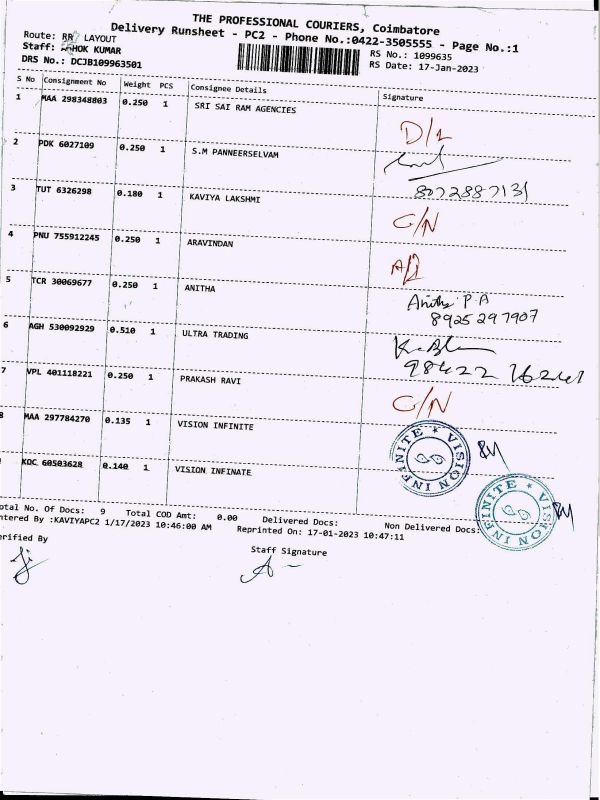 THE PROFESSIONAL COURIERS, Coimbatore
Delivery Runsheet - PC2 - Phone No.:0422-3505555 - Page No.:1
Route: RR LAYOUT
Staff: HOK KUMAR
DRS No.: DCJB109963501
RS No.: 1099635
RS Date: 17-Jan-2023
S No Consignment No Weight PCS Consignee Details Signature
1 MAA 298348803 0.250 1 SRI SAI RAM AGENCIES D/L
2 PDK 6027109 0.250 1 S.M PANNEERSELVAM 8072887131
3 TUT 6326298 0.180 1 KAVIYA LAKSHMI C/N
4 PNU 755912245 0.250 1 ARAVINDAN
5 TCR 30069677 0.250 1 ANITHA Anitha P.A
8925297907
6 AGH 530092929 0.510 1 ULTRA TRADING
98422
7 VPL 401118221 0.250 1 PRAKASH RAVI C/N
8 MAA 297784270 0.135 1 VISION INFINITE VISION INFINITE
KDC 60503628 0.140 1 VISION INFINATE VISION INFINITE
otal No. Of Docs: 9 Total COD Amt: 0.00 Delivered Docs: Non Delivered Docs:
ntered By :KAVIYAPC2 1/17/2023 10:46:00 AM Reprinted On: 17-01-2023 10:47:11
erified By Staff Signature